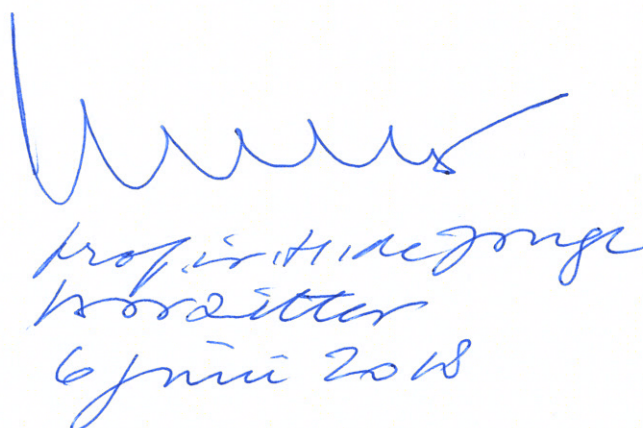 prof.ir.H.de Jonge
voorzitter
6 juni 2018